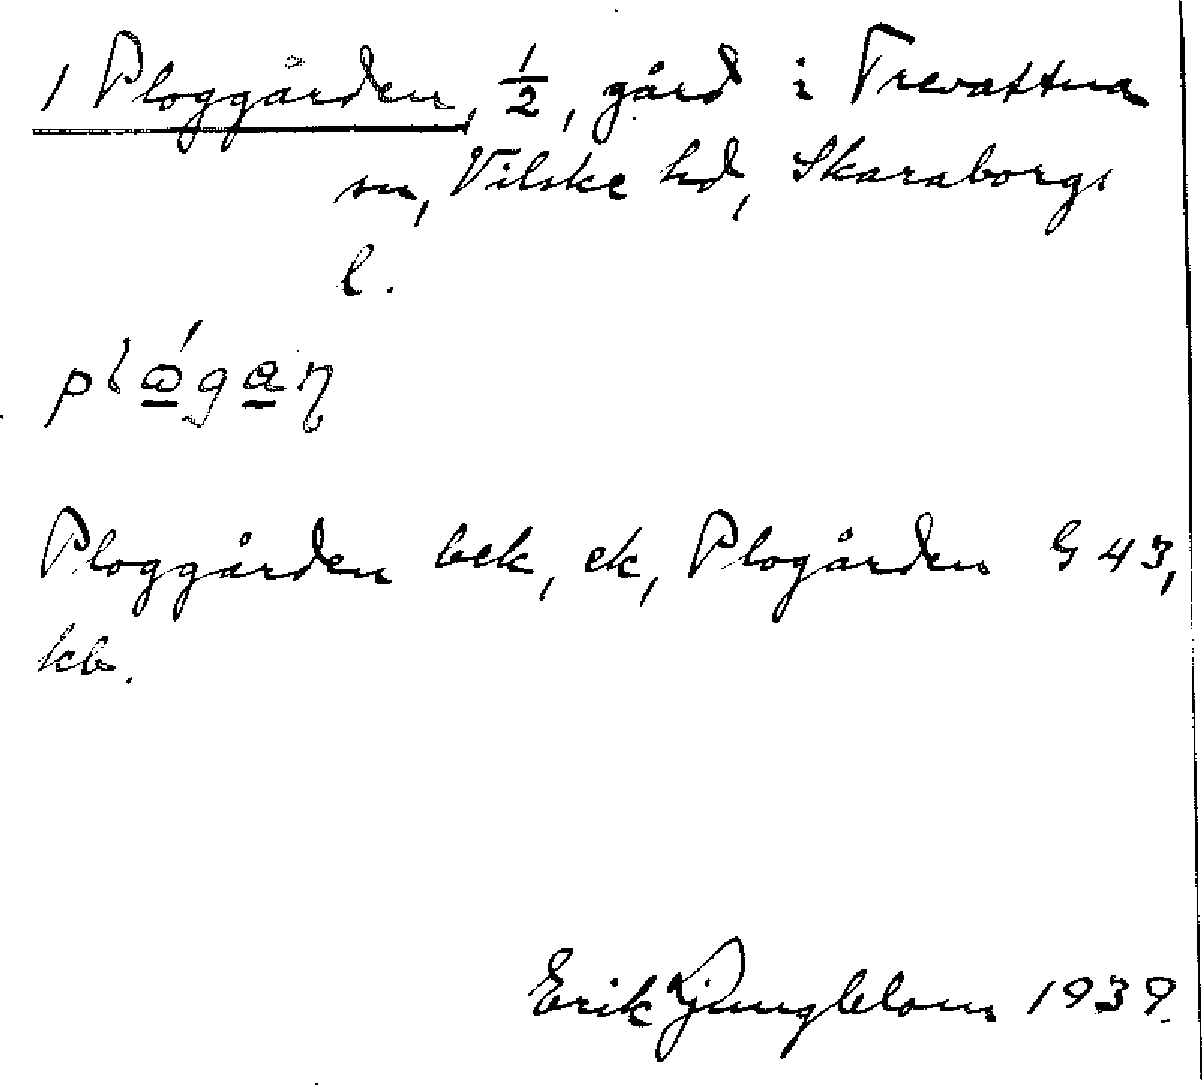 1 Ploggården, 1/2, gård i Trevattna
sn, Vilske hd, Skaraborgs
l.
Ploggården bek, ek, Plogården G 43,
kb.
Erik Ljungblom 1939.